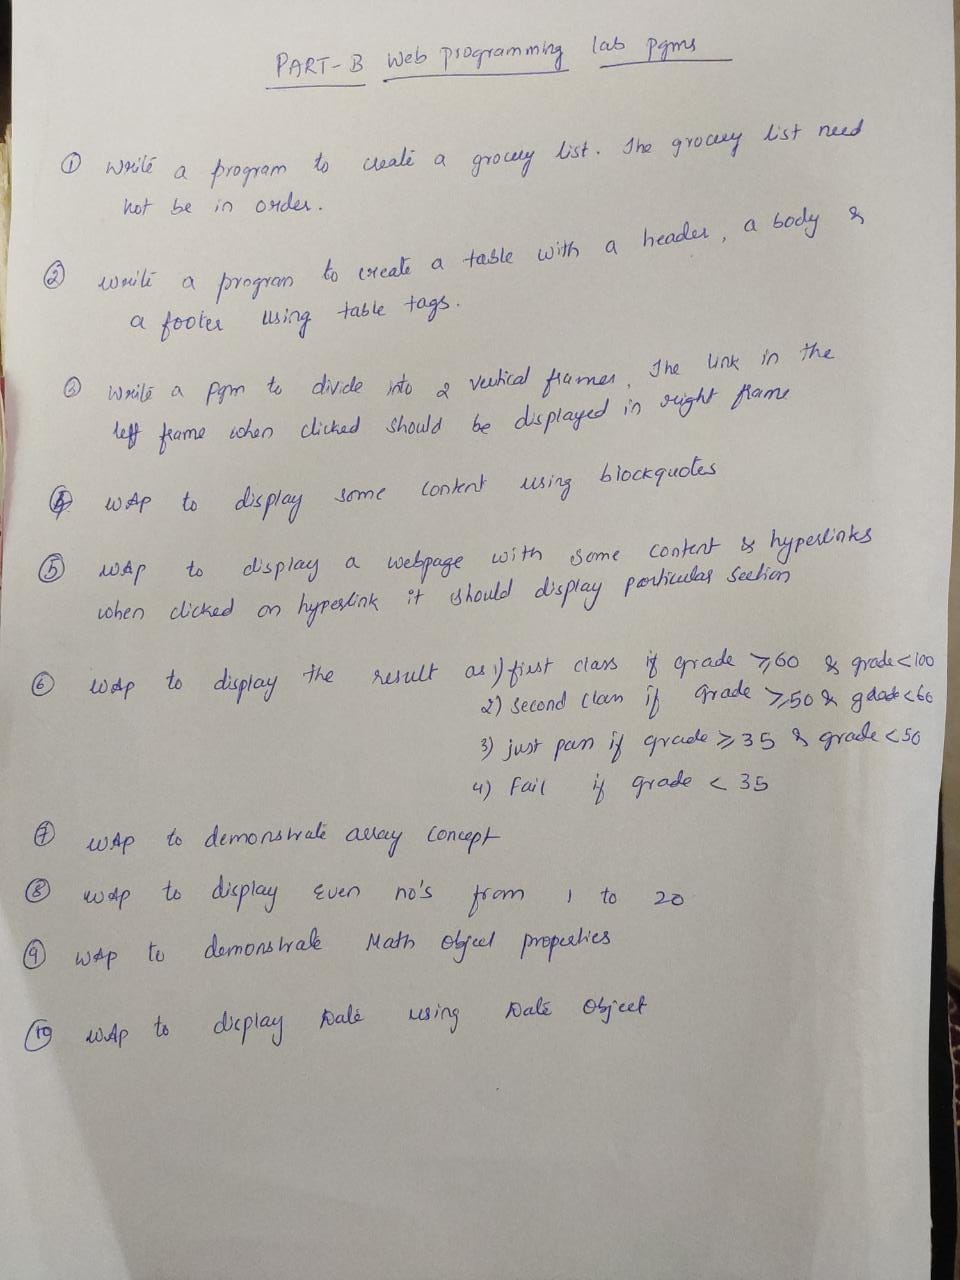 PART-B Web programming lab pgms
① Write a program to create a grocery list. The grocery list need
not be in order.
② Write a program to create a table with a header, a body &
a footer using table tags.
③ Write a pgm to divide into 2 vertical frames. The link in the
left frame when clicked should be displayed in right frame
④ WAP to display some content using blockquotes
⑤ WAP to display a webpage with some content & hyperlinks
when clicked on hyperlink it should display particular section
⑥ WAP to display the result as 1) first class if grade ≥60 & grade<100
2) Second class if grade ≥50 & grade<60
3) just pass if grade ≥ 35 & grade <50
4) Fail if grade < 35
⑦ WAP to demonstrate array concept
⑧ WAP to display Even no's from 1 to 20
⑨ WAP to demonstrate Math Object properties
⑩ WAP to display Date using Date Object